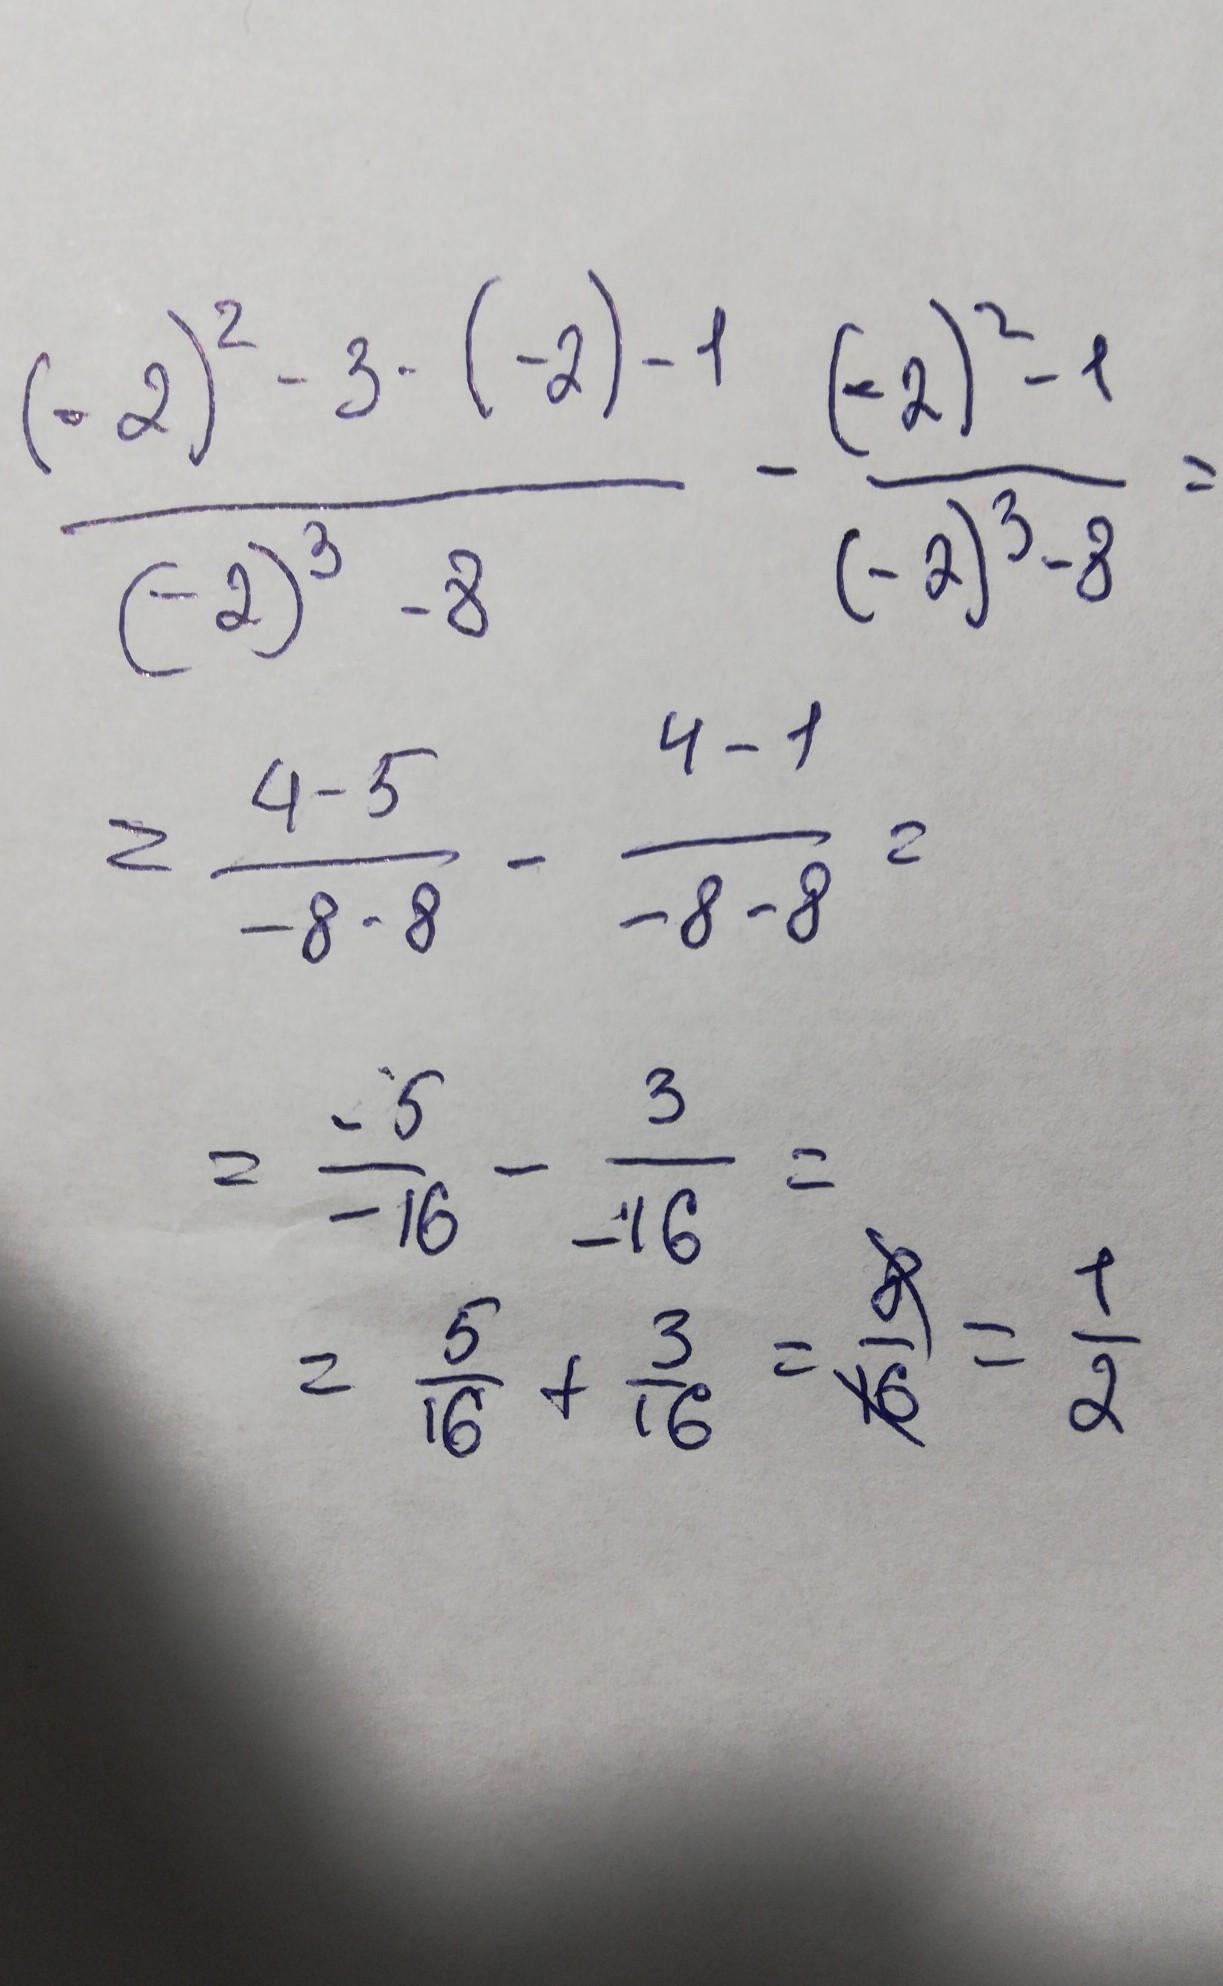 ((-2)² - 3 · (-2) - 1) / ((-2)³ - 8) - ((-2)² - 1) / ((-2)³ - 8) =
= (4 - 5) / (-8 - 8) - (4 - 1) / (-8 - 8) =
= -5 / -16 - 3 / -16 =
= 5/16 + 3/16 = 8/16 = 1/2